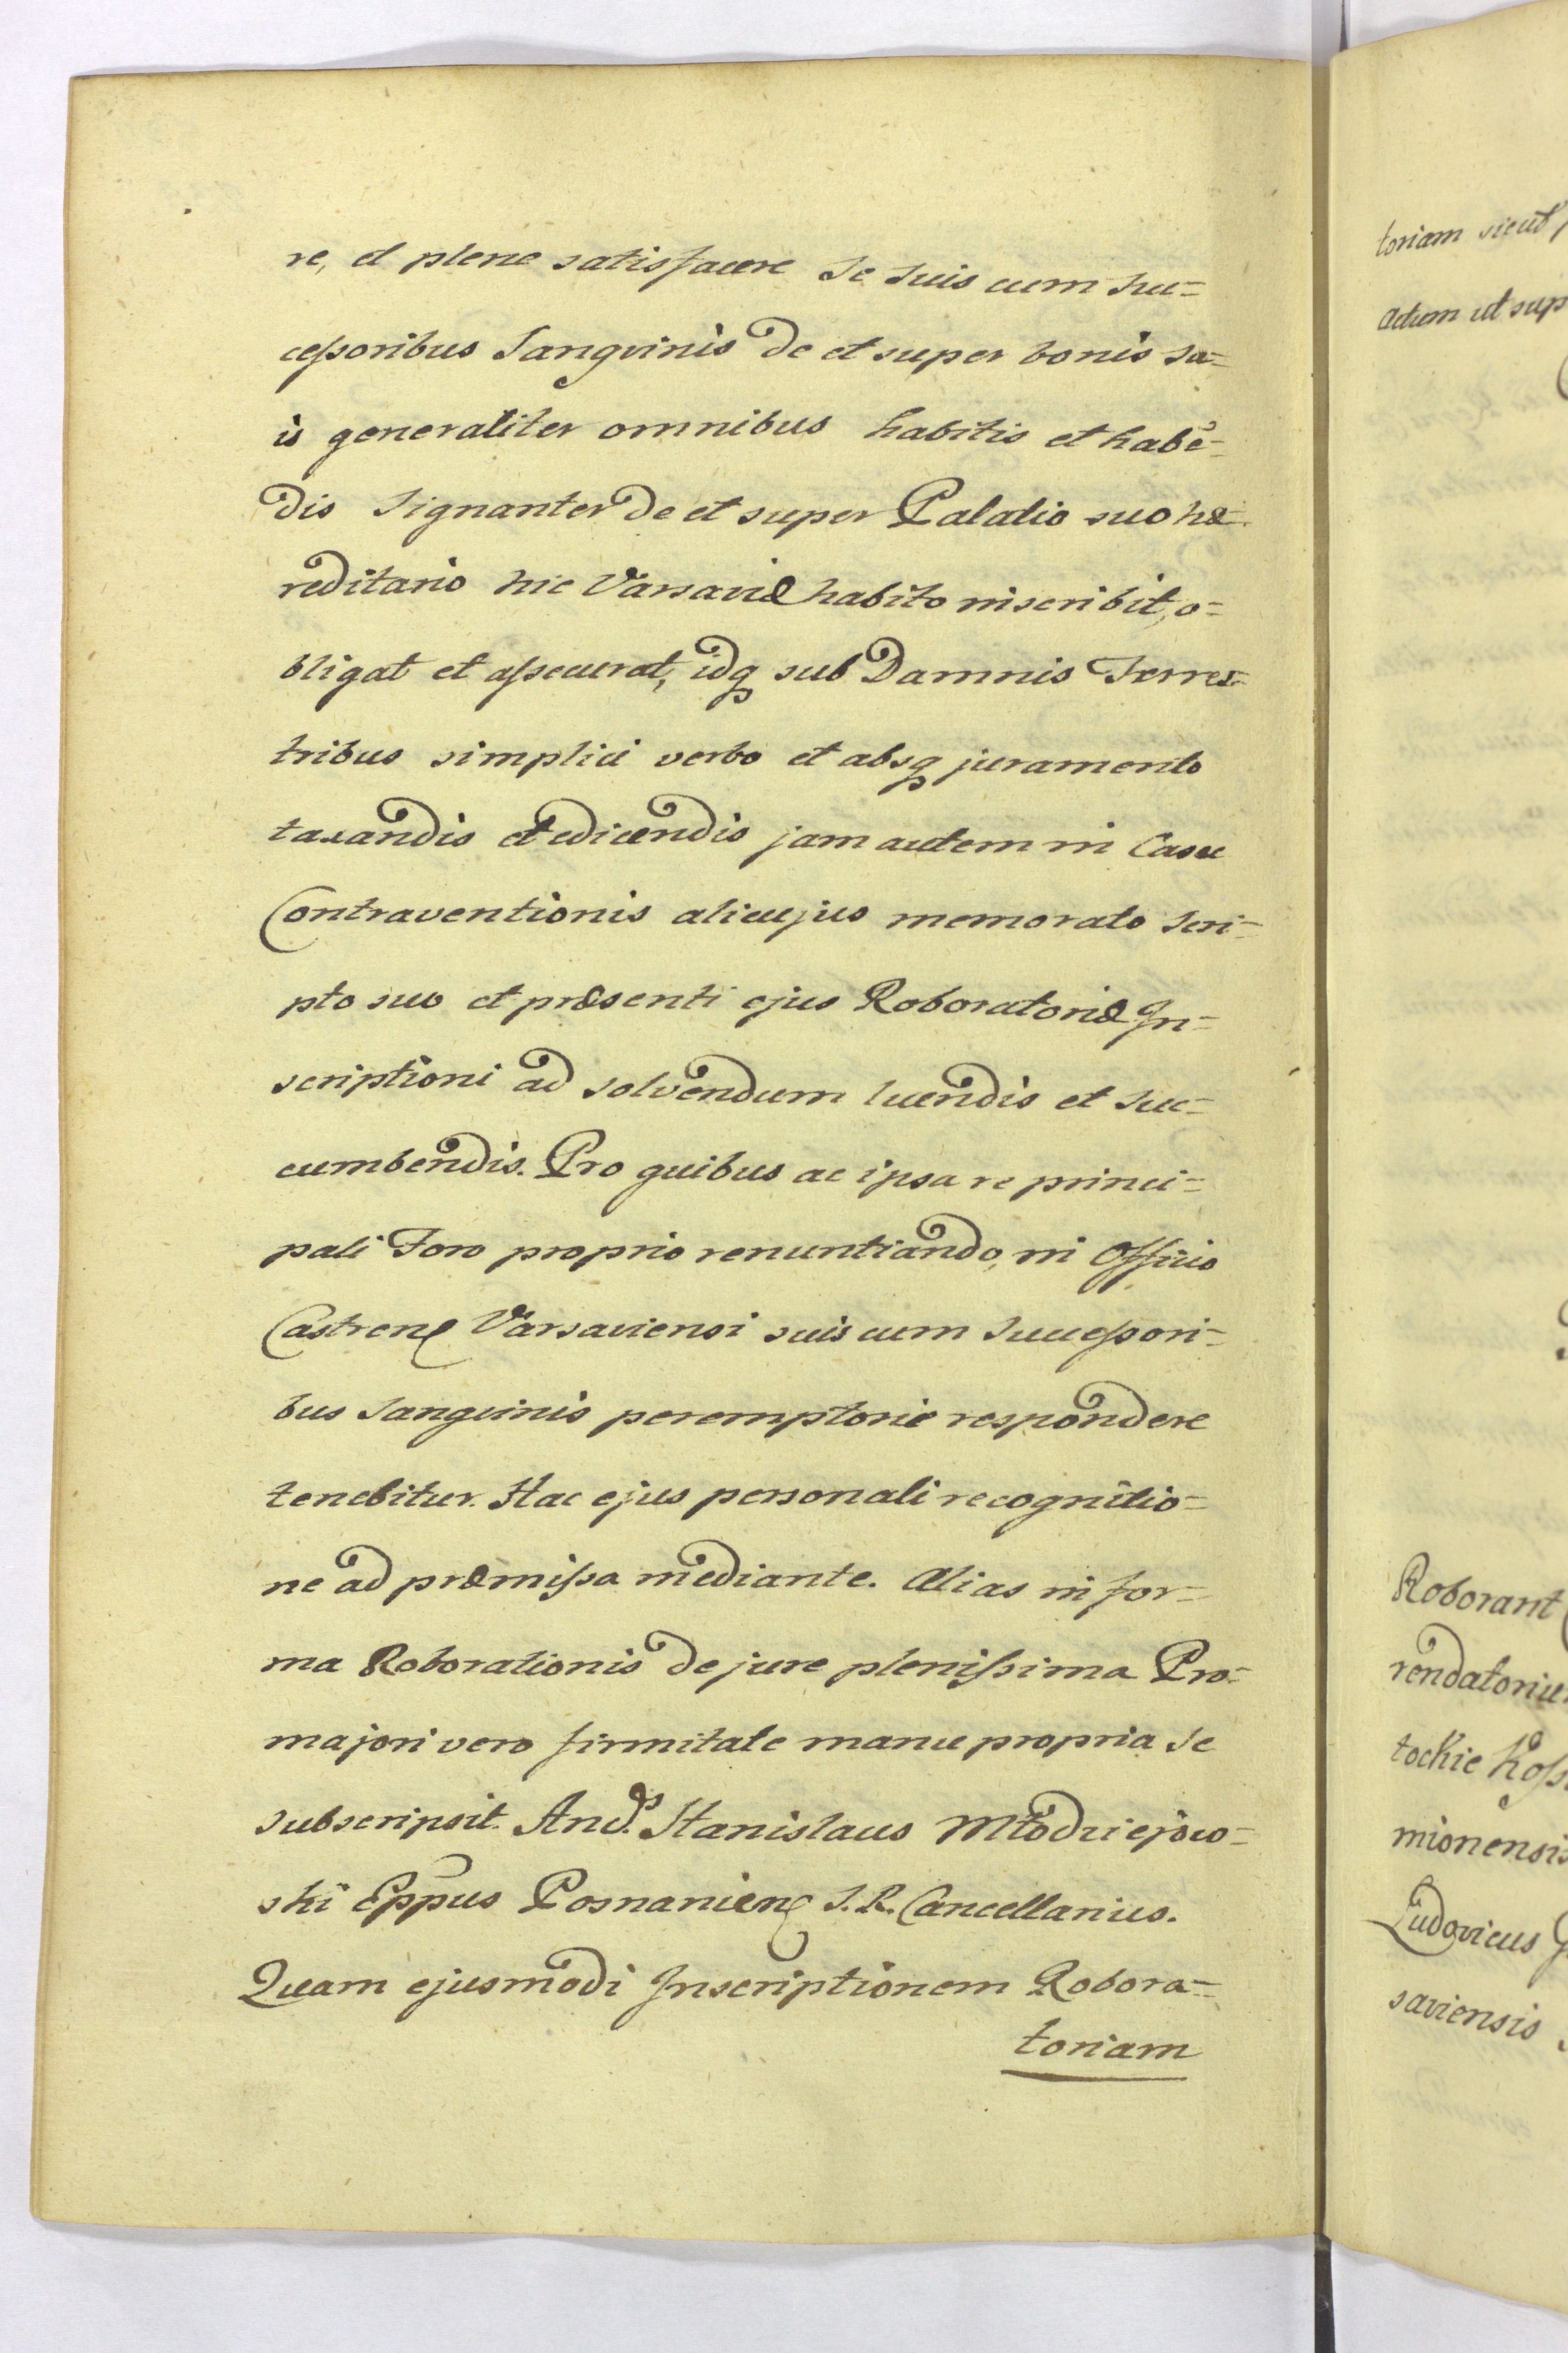 re, et plene satisfacere se suis cum suc=
cessoribus Sangvinis de et super bonis su=
is generaliter omnibus habitis et habē=
dis signanter de et super Palatio suo hæ=
reditario hic Varsaviæ habito inscribit, o=
bligat et assecurat, idq sub Damnis Terres=
tribus simplici verbo et absq juramento
taxandis et edicendis jam autem in Casu
Contraventionis alicujus memorato Scri=
pto suo et præsenti ejus Roboratoriæ In=
scriptioni ad solvendum luendis et suc=
cumbendis. Pro quibus ac ipsa re princi=
pali Foro proprio renuntiando, in Officio
Castren Varsaviensi suis cum Successori=
bus Sangvinis peremptorie respondere
tenebitur. Hac ejus personali recognitio=
ne ad præmissa mediante. Alias in for=
ma Roborationis de jure plenissima Pro=
majori vero firmitate manu propria se
subscripsit. Andˢ. Stanislaus Młodziejow=
ski Eppus Posnanien S. R. Cancellarius.
Quam ejusmodi Inscriptionem Robora=
toriam
toriam sicut
Actum ut sup
Roborant
rendatoriu
tockie Koss
mionensis
Ludovicus
saviensis